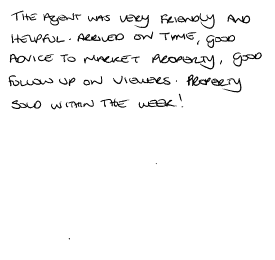 THE AGENT WAS VERY FRIENDLY AND
HELPFUL. ARRIVED ON TIME, GOOD
ADVICE TO MARKET PROPERTY, GOOD
FOLLOW UP ON VIEWERS. PROPERTY
SOLD WITHIN THE WEEK!